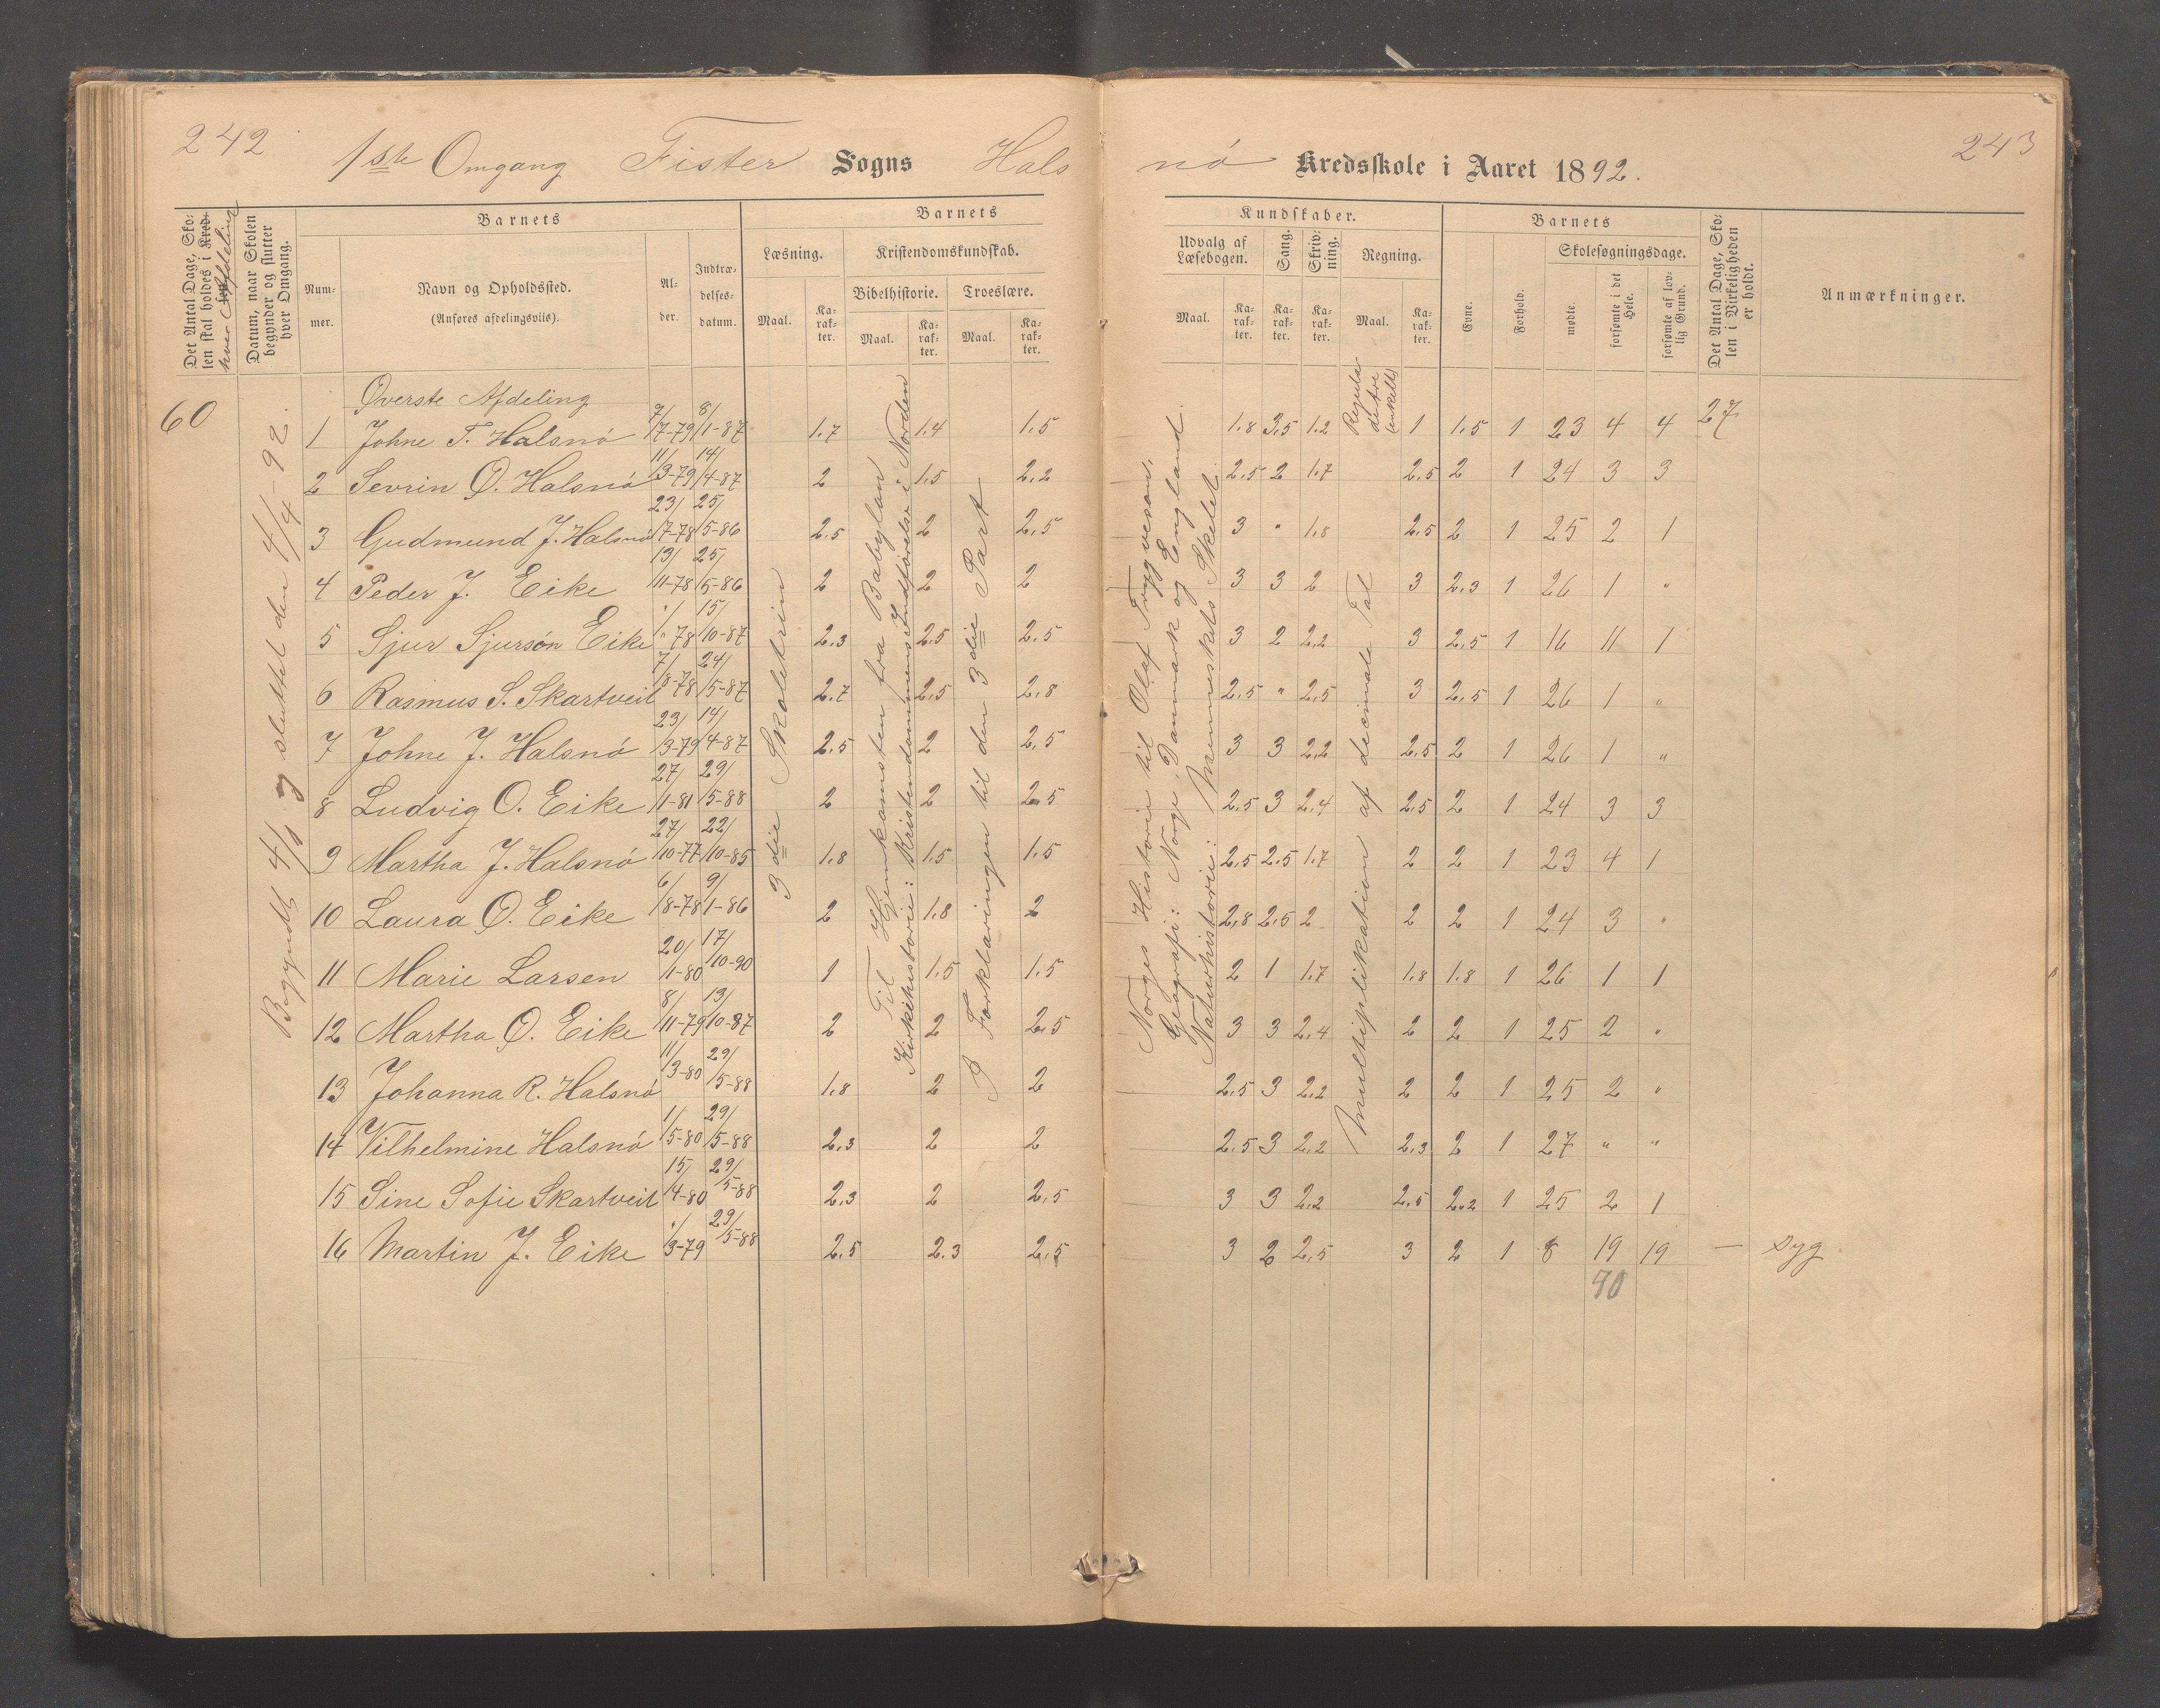 242
1ste Omgang Fister Sogns Halsnø Kredsskole i Aaret 1892.
243
Det Antal Dage, Skolen skal holdes i hver Afdeling
Datum, naar Skolen begynder og slutter hver Omgang.
Barnets
Nummer.
Navn og Opholdssted.
(Anføres afdelingsviis).
Alder.
Indtrædelsesdatum.
Barnets
Læsning.
Maal.
Karakter.
Kristendomskundskab.
Bibelhistorie.
Maal.
Karakter.
Troeslære.
Maal.
Karakter.
Kundskaber.
Udvalg af Læsebogen.
Maal.
Karakter.
Sang.
Karakter.
Skrivning.
Karakter.
Regning.
Maal.
Karakter.
Barnets
Evne.
Forhold.
Skolesøgningsdage.
mødte.
forsømte i det Hele.
forsømte af lovlig Grund.
Det Antal Dage, Skolen i Virkeligheden er holdt.
Anmærkninger.
60
Begyndt 4/1 og sluttet den 4/4-92.
3die Skoletrin
Til Hjemkomsten fra Babylon
Kirkehistorie: Kristendommens Indførelse i Norden
I Forklaringen til den 3die Part
Norges Historie til Olaf Trygveson.
Geografi: Norge, Danmark og England.
Naturhistorie: Menneskets Skelet.
Regula de tre (enkelt)
Multiplikation af decimale Tal
Øverste Afdeling
1 Johne T. Halsnø 7/7-79 8/1-87 1.7 1.4 1.5 1.8 3.5 1.2 1 1.5 1 23 4 4 27
2 Sevrin O. Halsnø 11/3-79 14/4-87 2 1.5 2.2 2.5 2 1.7 2.5 2 1 24 3 3
3 Gudmund J. Halsnø 23/7-78 25/5-86 2.5 2 2.5 3 " 1.8 2.5 2 1 25 2 1
4 Peder J. Eike 13/11-78 25/5-86 2 2 2 3 3 2 3 2.3 1 26 1 "
5 Sjur Sjursøn Eike "/"78 15/10-87 2.3 2.5 2.5 3 2 2.2 3 2.5 1 16 11 1
6 Rasmus S. Skartveit 7/8-78 24/5-87 2.7 2.5 2.8 2.5 " 2.5 3 2.5 1 26 1 "
7 Johne J. Halsnø 23/3-79 14/4-87 2.5 2 2.5 3 3 2.2 2.5 2 1 26 1 "
8 Ludvig O. Eike 27/1-81 29/5-88 2 2 2.5 2.5 3 2.4 2.5 2 1 24 3 3
9 Martha J. Halsnø 27/10-77 22/10-85 1.8 1.5 1.5 2.5 2.5 1.7 2 2 1 23 4 1
10 Laura O. Eike 6/8-78 9/1-86 2 1.8 2 2.8 2.5 2 2 2 1 24 3 "
11 Marie Larsen 20/1-80 17/10-90 1 1.5 1.5 2 1 1.7 1.8 1.8 1 26 1 1
12 Martha O. Eike 8/11-79 13/10-87 2 2 2.5 3 3 2.4 2 2 1 25 2 "
13 Johanna R. Halsnø 11/3-80 29/5-88 1.8 2 2 2.5 3 2.2 2 2 1 25 2 "
14 Vilhelmine Halsnø 1/5-80 29/5-88 2.3 2 2 2.5 3 2.2 2.3 2 1 27 " "
15 Sine Sofie Skartveit 15/4-80 29/5-88 2.3 2 2.5 3 3 2.2 2.5 2.2 1 25 2 1
16 Martin J. Eike "/3-79 29/5-88 2.5 2.3 2.5 3 2 2.5 3 2 1 8 19 19 — Syg